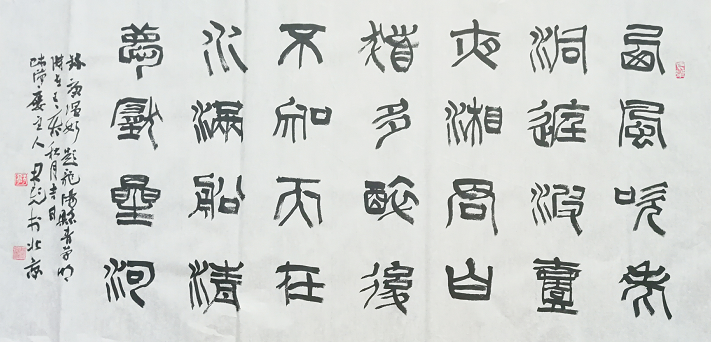 西風吹老
洞庭波壹
夜湘君白
髮多醉後
不知天在
水滿船清
夢壓星河
唐溫如題龍陽縣青草湖
秋月吉日
主人 北京